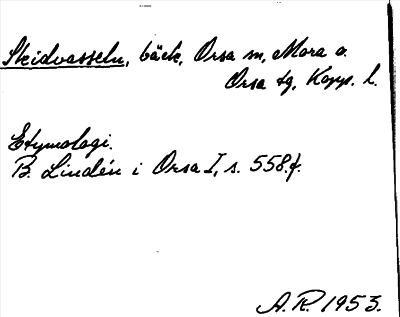 Skidvasseln, bäck, Orsa sn, Mora o.
Orsa tg, Kopp. l.
Etymologi.
B. Lindén i Orsa I, s. 558.f.
A. R. 1953.